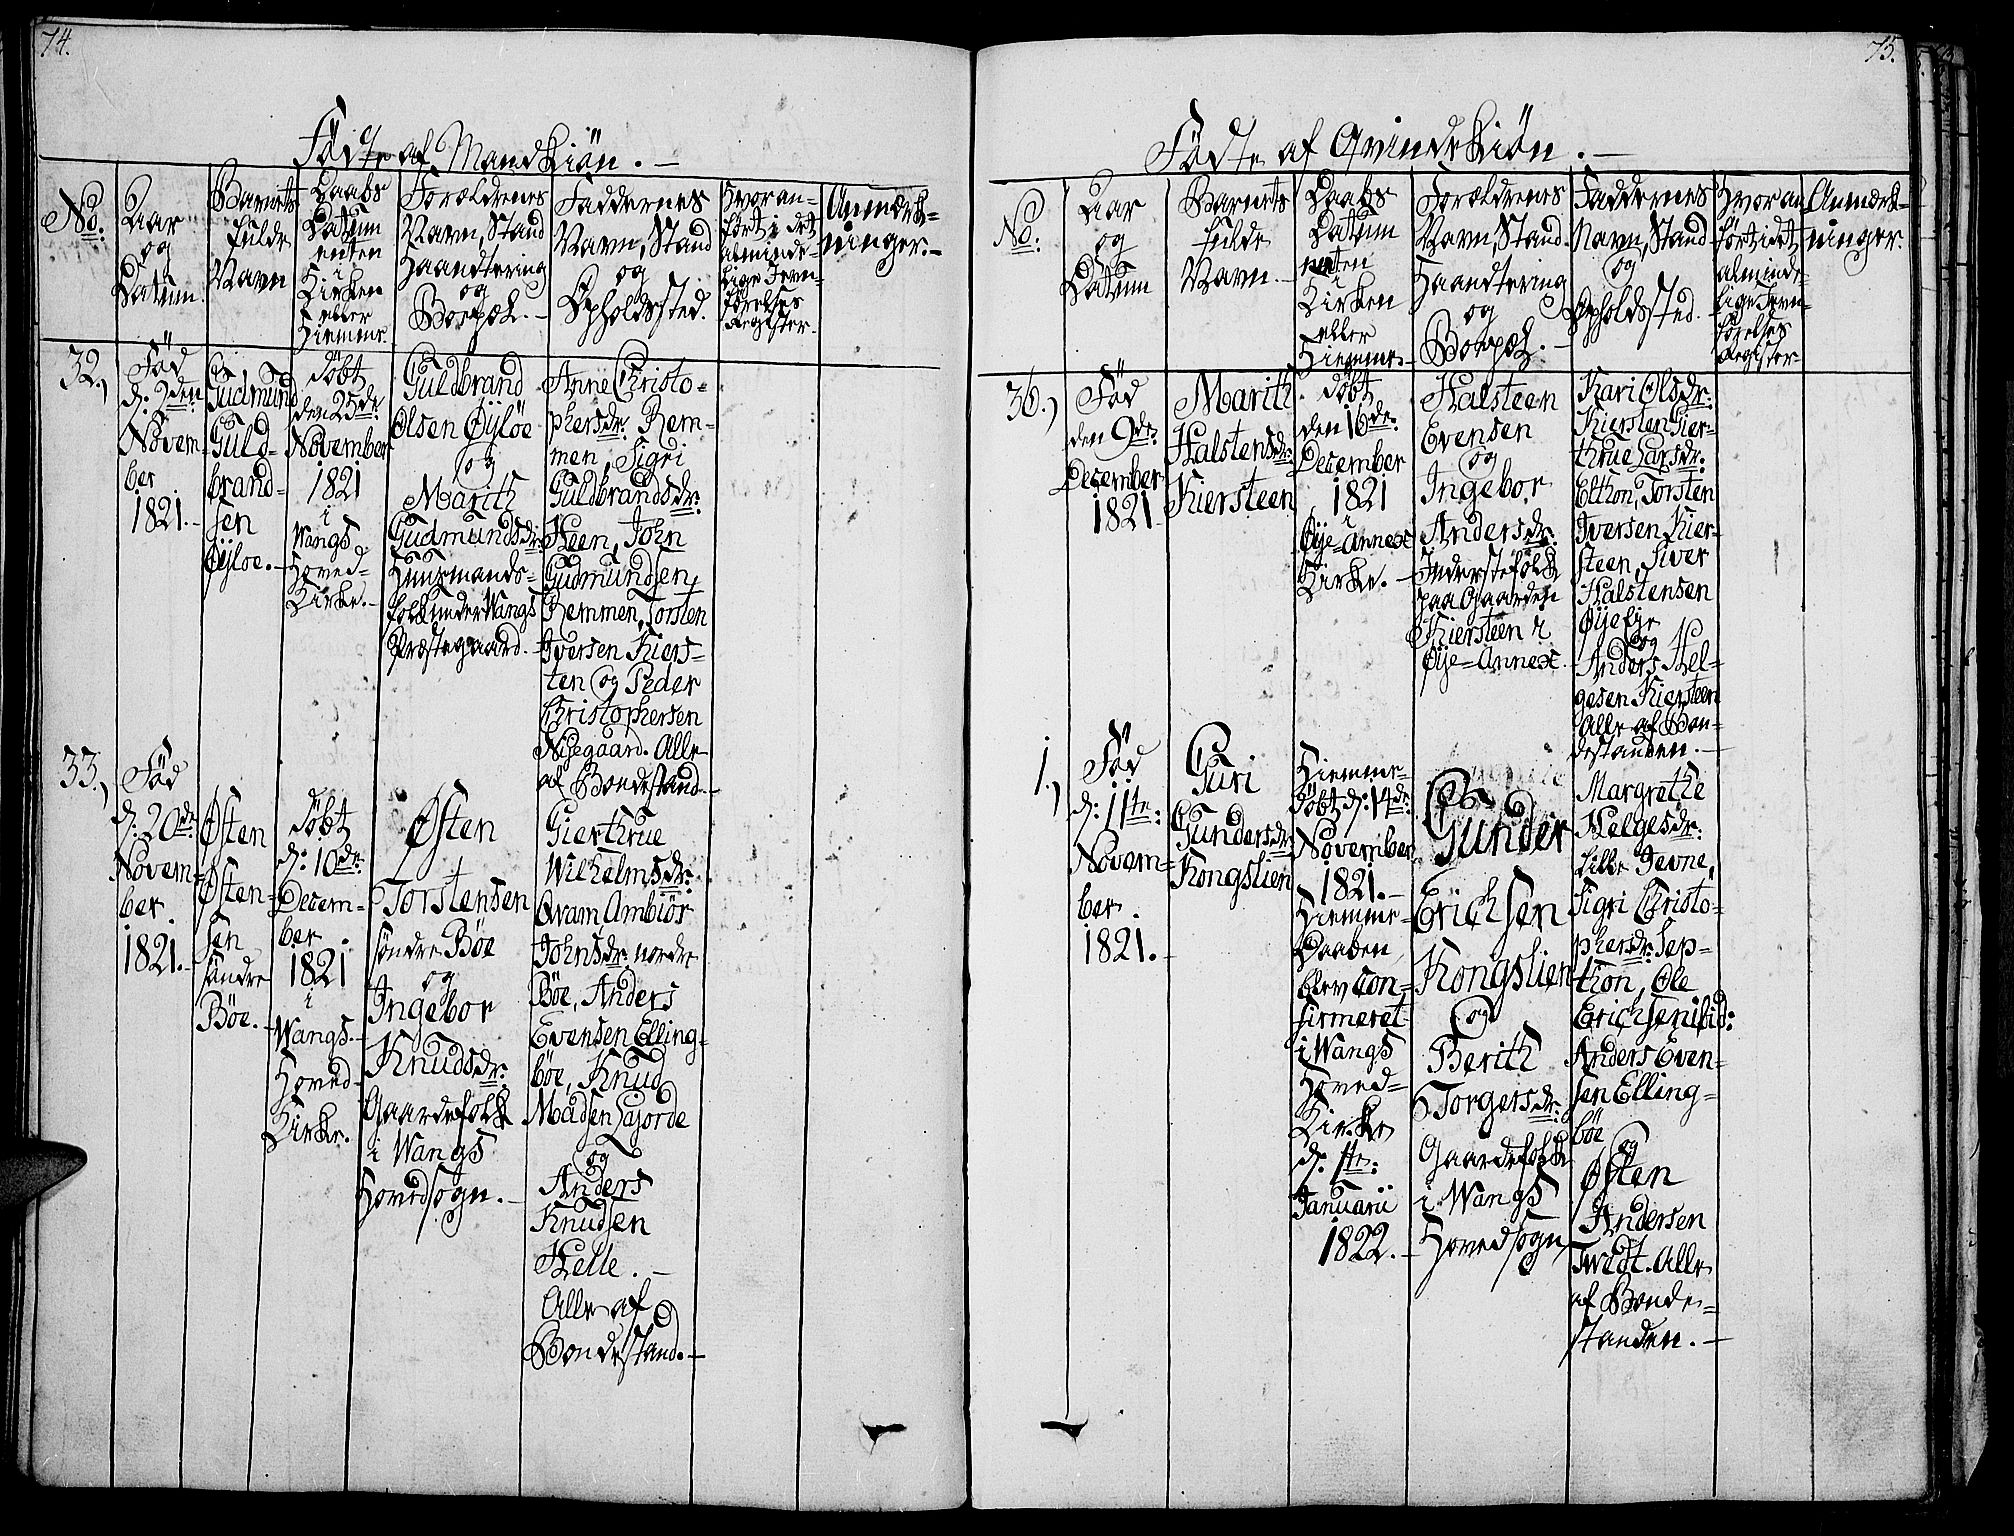 74.
Födte af Mandkiön. —
No:
Aar
og
Datum.
Barnets
fulde
Navn
Daabs
Datum
enten
i
Kirken
eller
Hiemme.
Forældrenes
Navn, Stand
Haandtering
og
Boepæl. —
Faddernes
Navn, Stand
og
Opholdssted.
Hvor an-
fört i det
alminde-
lige Jevn-
förelses
Register.
Anmærk-
ninger. —
32.,
Föd
d: 2den
Novem-
ber
1821. —
Gudmund
Guld-
brand-
sen
Öÿloe. —
döbt
den 25de
November
1821
i
Wangs
Hoved-
Kirke. —
Guldbrand
Olsen Öÿlöe
og
Marith
Gudmundsdr:
Huusmands-
folk under Wangs
Præstegaard. —
Anne Christo-
phersdr: Rem-
men, Sigri
Guldbrandsdr:
Heen, John
Gudmundsen
Remmen, Torsten
Iversen Kiers-
ten og Peder
Christophersen
Nÿegaard. Alle
af Bondestand. —
33.,
Föd
d: 20de
Novem-
ber.
1821. —
Östen
Östen-
sen
söndre
Böe. —
döbt
d: 10de
Decem-
ber.
1821
i
Wangs
Hoved-
Kirke.
Östen
Torstensen
söndre Böe
og
Ingebor
Knudsdr:
Gaardefolk
i Wangs
Hovedsogn. —
Gierthrue
Wilhelmsdr:
Qvam, Ambiör
Johnsdr: nordre
Böe, Anders
Evensen Elling-
böe, Knud
Madsen Lajorde
og
Anders
Knudsen
Helle. —
Alle af
Bondestand. —
75.
Födte af Qvindekiön. —
No:
Aar
og
Datum
Barnets
fulde
Navn. —
Daabs
Datum
enten
i
Kirken
eller
Hiemme. —
Forældrenes
Navn, Stand
Haandtering
og
Boepæl. —
Faddernes
Navn, Stand
og
Opholdssted.
Hvor an-
fört i det
alminde-
lige Jevn-
förelses
Register
Anmærk-
ninger.
36.,
Föd
den 9de:
December
1821
Marith
Halstensdr:
Kiersteen
döbt
den 16de:
December
1821
i
Öÿe-Annex
Kirke. —
Halsteen
Evensen
og
Ingebor
Andersdr:
Inderstefolk
paa Gaarden
Kiersteen i
Öÿe-Annex.
Kari Olsdr:
Kiersten Gier-
thrue Larsdr:
Elthon, Torsten
Iversen Kier-
steen, Siver
Halstensen
Öÿe Eje
og
Anders Hel-
gesen Kiersteen
Alle af Bon-
destanden. —
1.,
Föd
d: 11te:
Novem-
ber.
1821. —
Guri
Gundersdr:
Kongslien
Hiemme-
döbt d: 14de
November
1821. —
Hiemme-
Daaben
blev con-
firmeret
i Wangs
Hoved-
Kirke
d: 1te:
Januarii
1822. —
Gunder
Erichsen
Kongslien
og
Berith
Torgersdr:
Gaardefolk
i Wangs
Hovedsogn
Margrethe
Helgesdr:
Lille Jevne,
Sigri Christo-
phersdr: Sep-
thon, Ole
Erichsen ibid:
Anders Even-
sen Elling-
böe
og
Östen
Andersen
Twedt. Alle
af Bonde-
standen. —